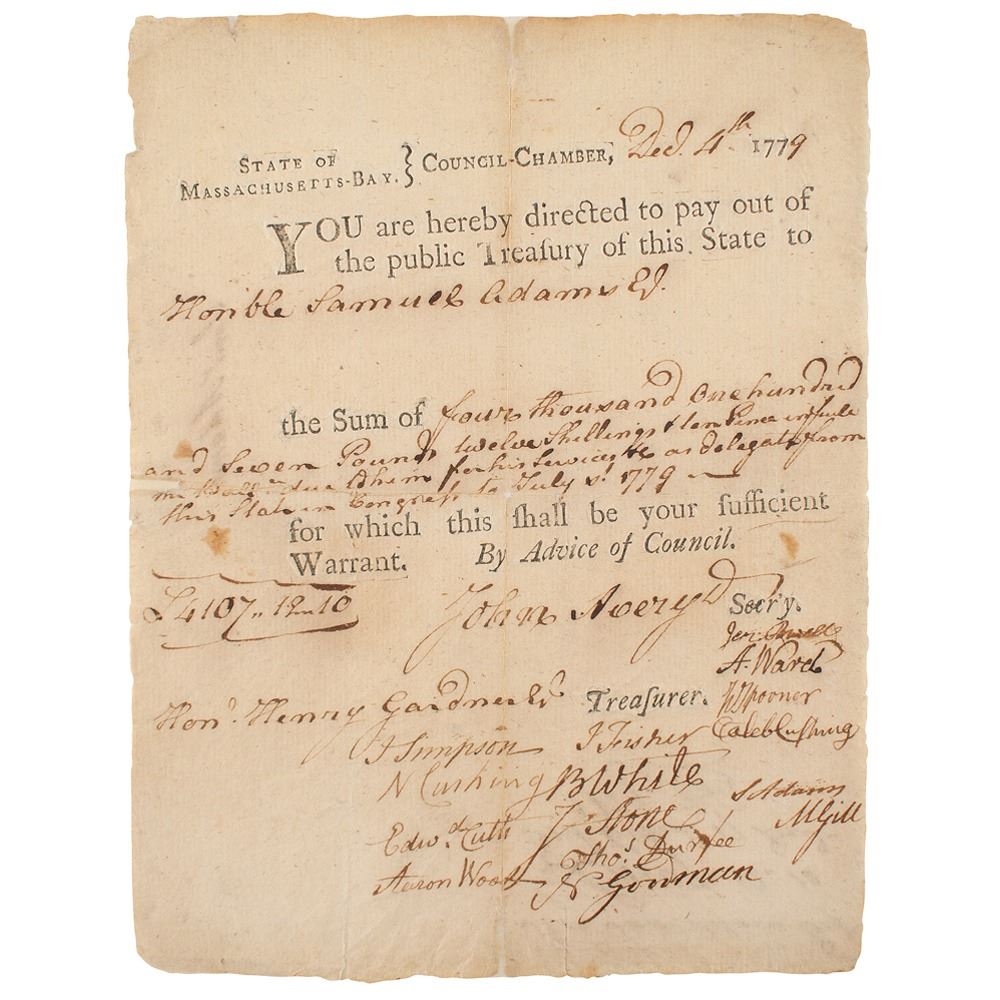 STATE OF
MASSACHUSETTS-BAY. } COUNCIL-CHAMBER, Decr. 4th 1779
YOU are hereby directed to pay out of
the public Treaſury of this State to
Honble Samuel Adams Esq.
the Sum of four thousand One hundred
and Seven Pounds twelve Shillings & ten Pence in full
due him for his Services as delegate from
this State in Congress to July 1779
for which this ſhall be your ſufficient
Warrant. By Advice of Council.
£4107„12„10
John Avery D Secr'y.
Jer: Powell
A. Ward
Honl. Henry Gardner Esqr Treaſurer. W Spooner
Caleb Cushing
J Simpson J Fisher
N Cushing B White S Adams
Edwd. Cutts J Stone M Gill
Aaron Wood Thos. Durfee
N Goodman